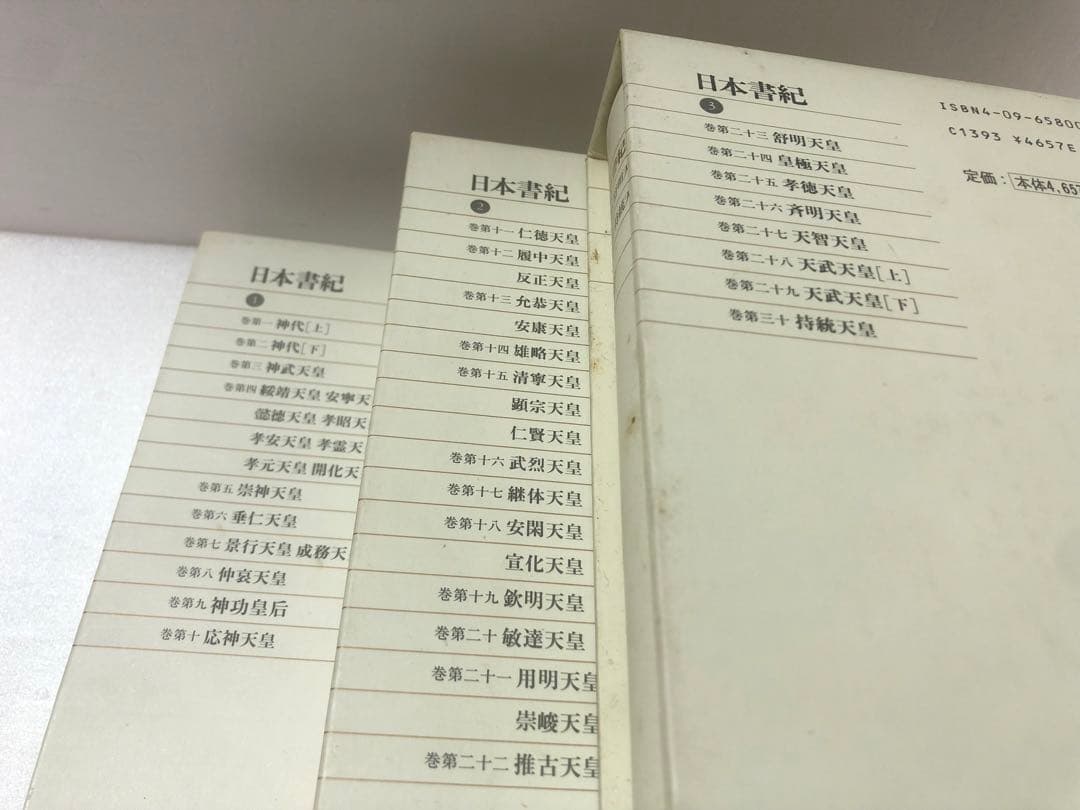 日本書紀
1
巻第一 神代[上]
巻第二 神代[下]
巻第三 神武天皇
巻第四 綏靖天皇 安寧天
懿徳天皇 孝昭天
孝安天皇 孝霊天
孝元天皇 開化天
巻第五 崇神天皇
巻第六 垂仁天皇
巻第七 景行天皇 成務天
巻第八 仲哀天皇
巻第九 神功皇后
巻第十 応神天皇
日本書紀
2
巻第十一 仁徳天皇
巻第十二 履中天皇
反正天皇
巻第十三 允恭天皇
安康天皇
巻第十四 雄略天皇
巻第十五 清寧天皇
顕宗天皇
仁賢天皇
巻第十六 武烈天皇
巻第十七 継体天皇
巻第十八 安閑天皇
宣化天皇
巻第十九 欽明天皇
巻第二十 敏達天皇
巻第二十一 用明天皇
崇峻天皇
巻第二十二 推古天皇
日本書紀
3
巻第二十三 舒明天皇
巻第二十四 皇極天皇
巻第二十五 孝徳天皇
巻第二十六 斉明天皇
巻第二十七 天智天皇
巻第二十八 天武天皇[上]
巻第二十九 天武天皇[下]
巻第三十 持統天皇
ISBN4-09-6580
C1393 ¥4657E
定価:本体4,657